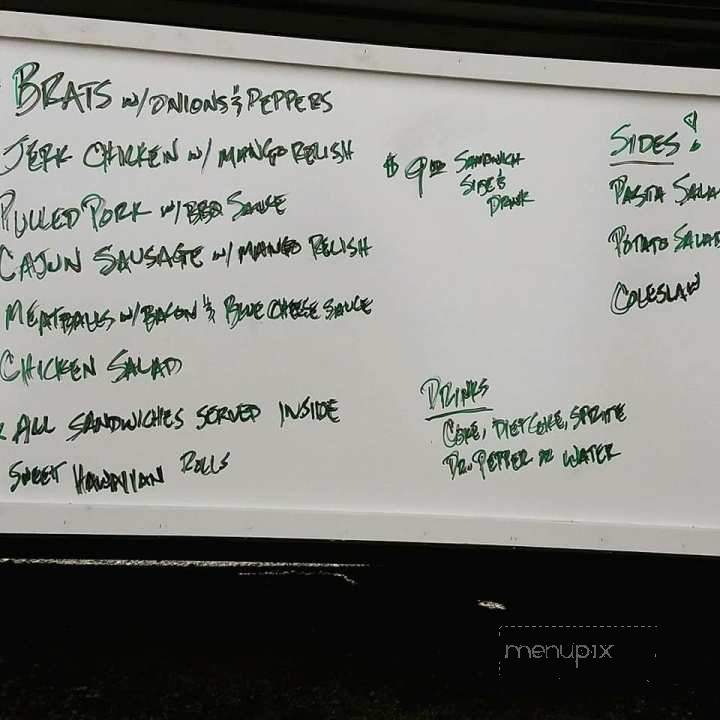 BRATS w/ONIONS & PEPPERS
JERK CHICKEN w/ MANGO RELISH
PULLED PORK w/ BBQ SAUCE
CAJUN SAUSAGE w/ MANGO RELISH
MEATBALLS w/BACON & BLUE CHEESE SAUCE
CHICKEN SALAD
* ALL SANDWICHES SERVED INSIDE
SWEET HAWAIIAN ROLLS
$9.00 SANDWICH
SIDE &
DRINK
SIDES:
PASTA SALA
POTATO SALAD
COLESLAW
DRINKS
COKE, DIET COKE, SPRITE
DR. PEPPER or WATER
menupix